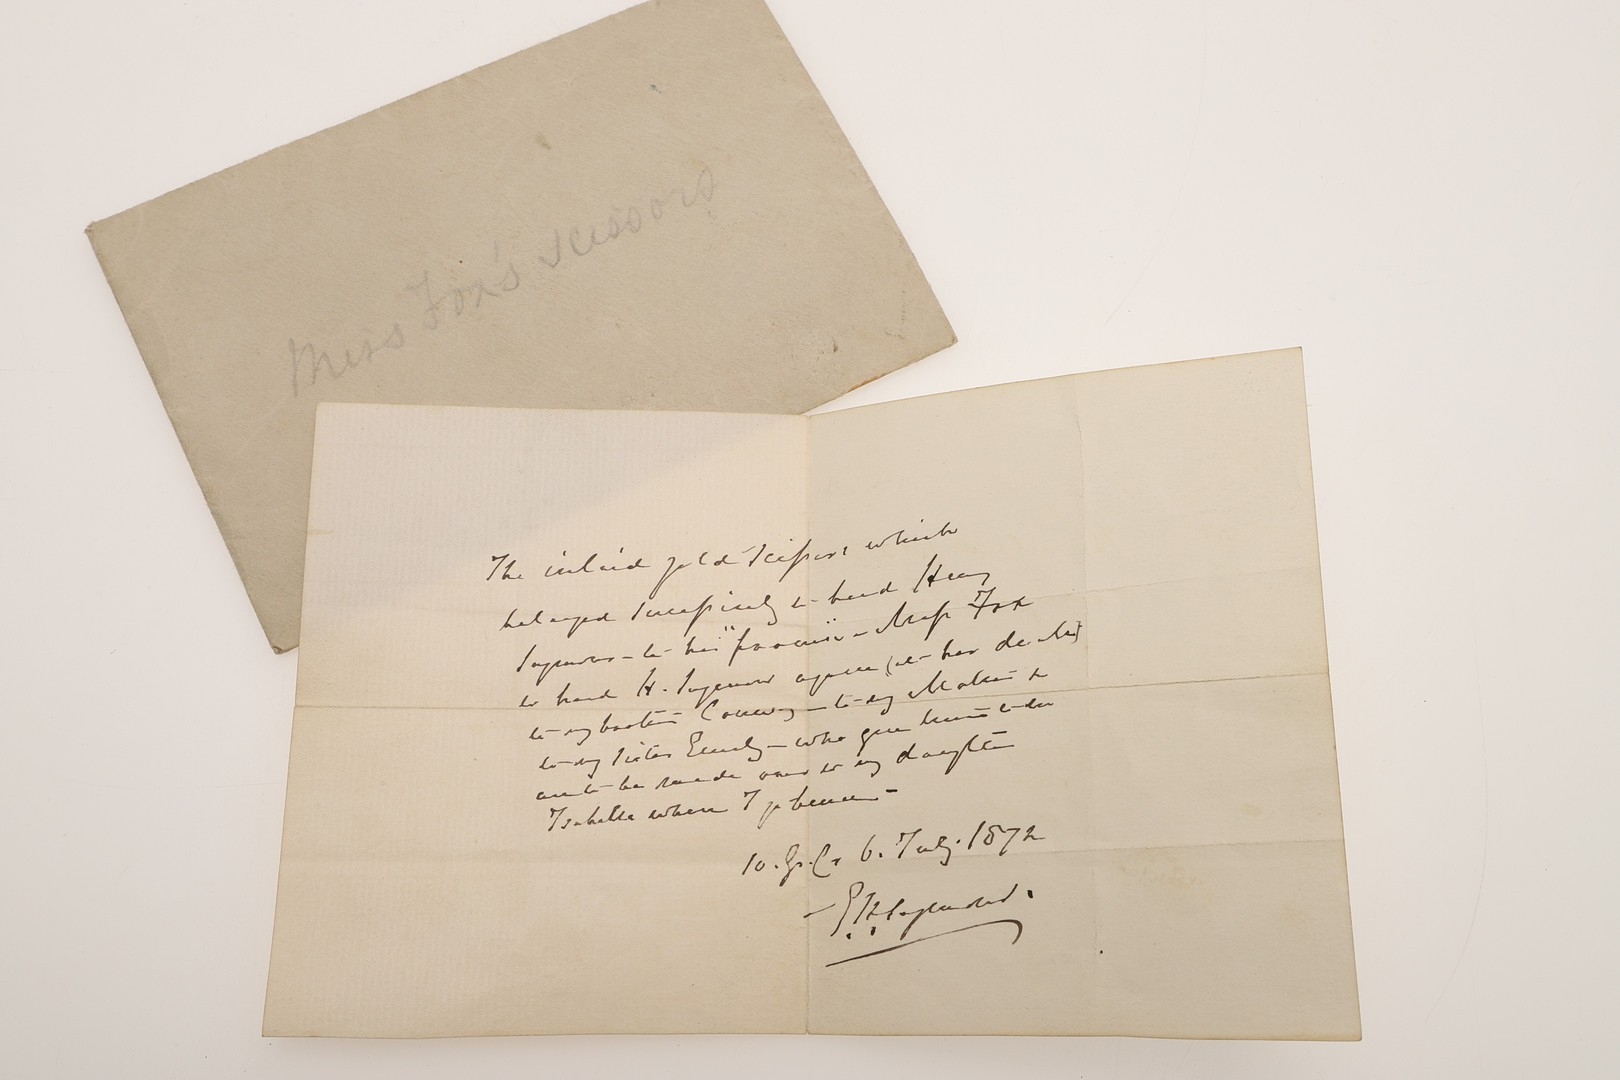 Miss Fox's scissors
The inlaid gold Scissors which
belonged Successively to Lord Henry
Seymour - to his "promise" - Miss Fox
to Lord H. Seymour again (at her death)
to my brother Conway - to my Mother &
to my Sister Emily - who gave them to me
are to be made over to my daughter
Isabella when I go hence -
10. Gr. Cr 6. July. 1872
- Seymour.